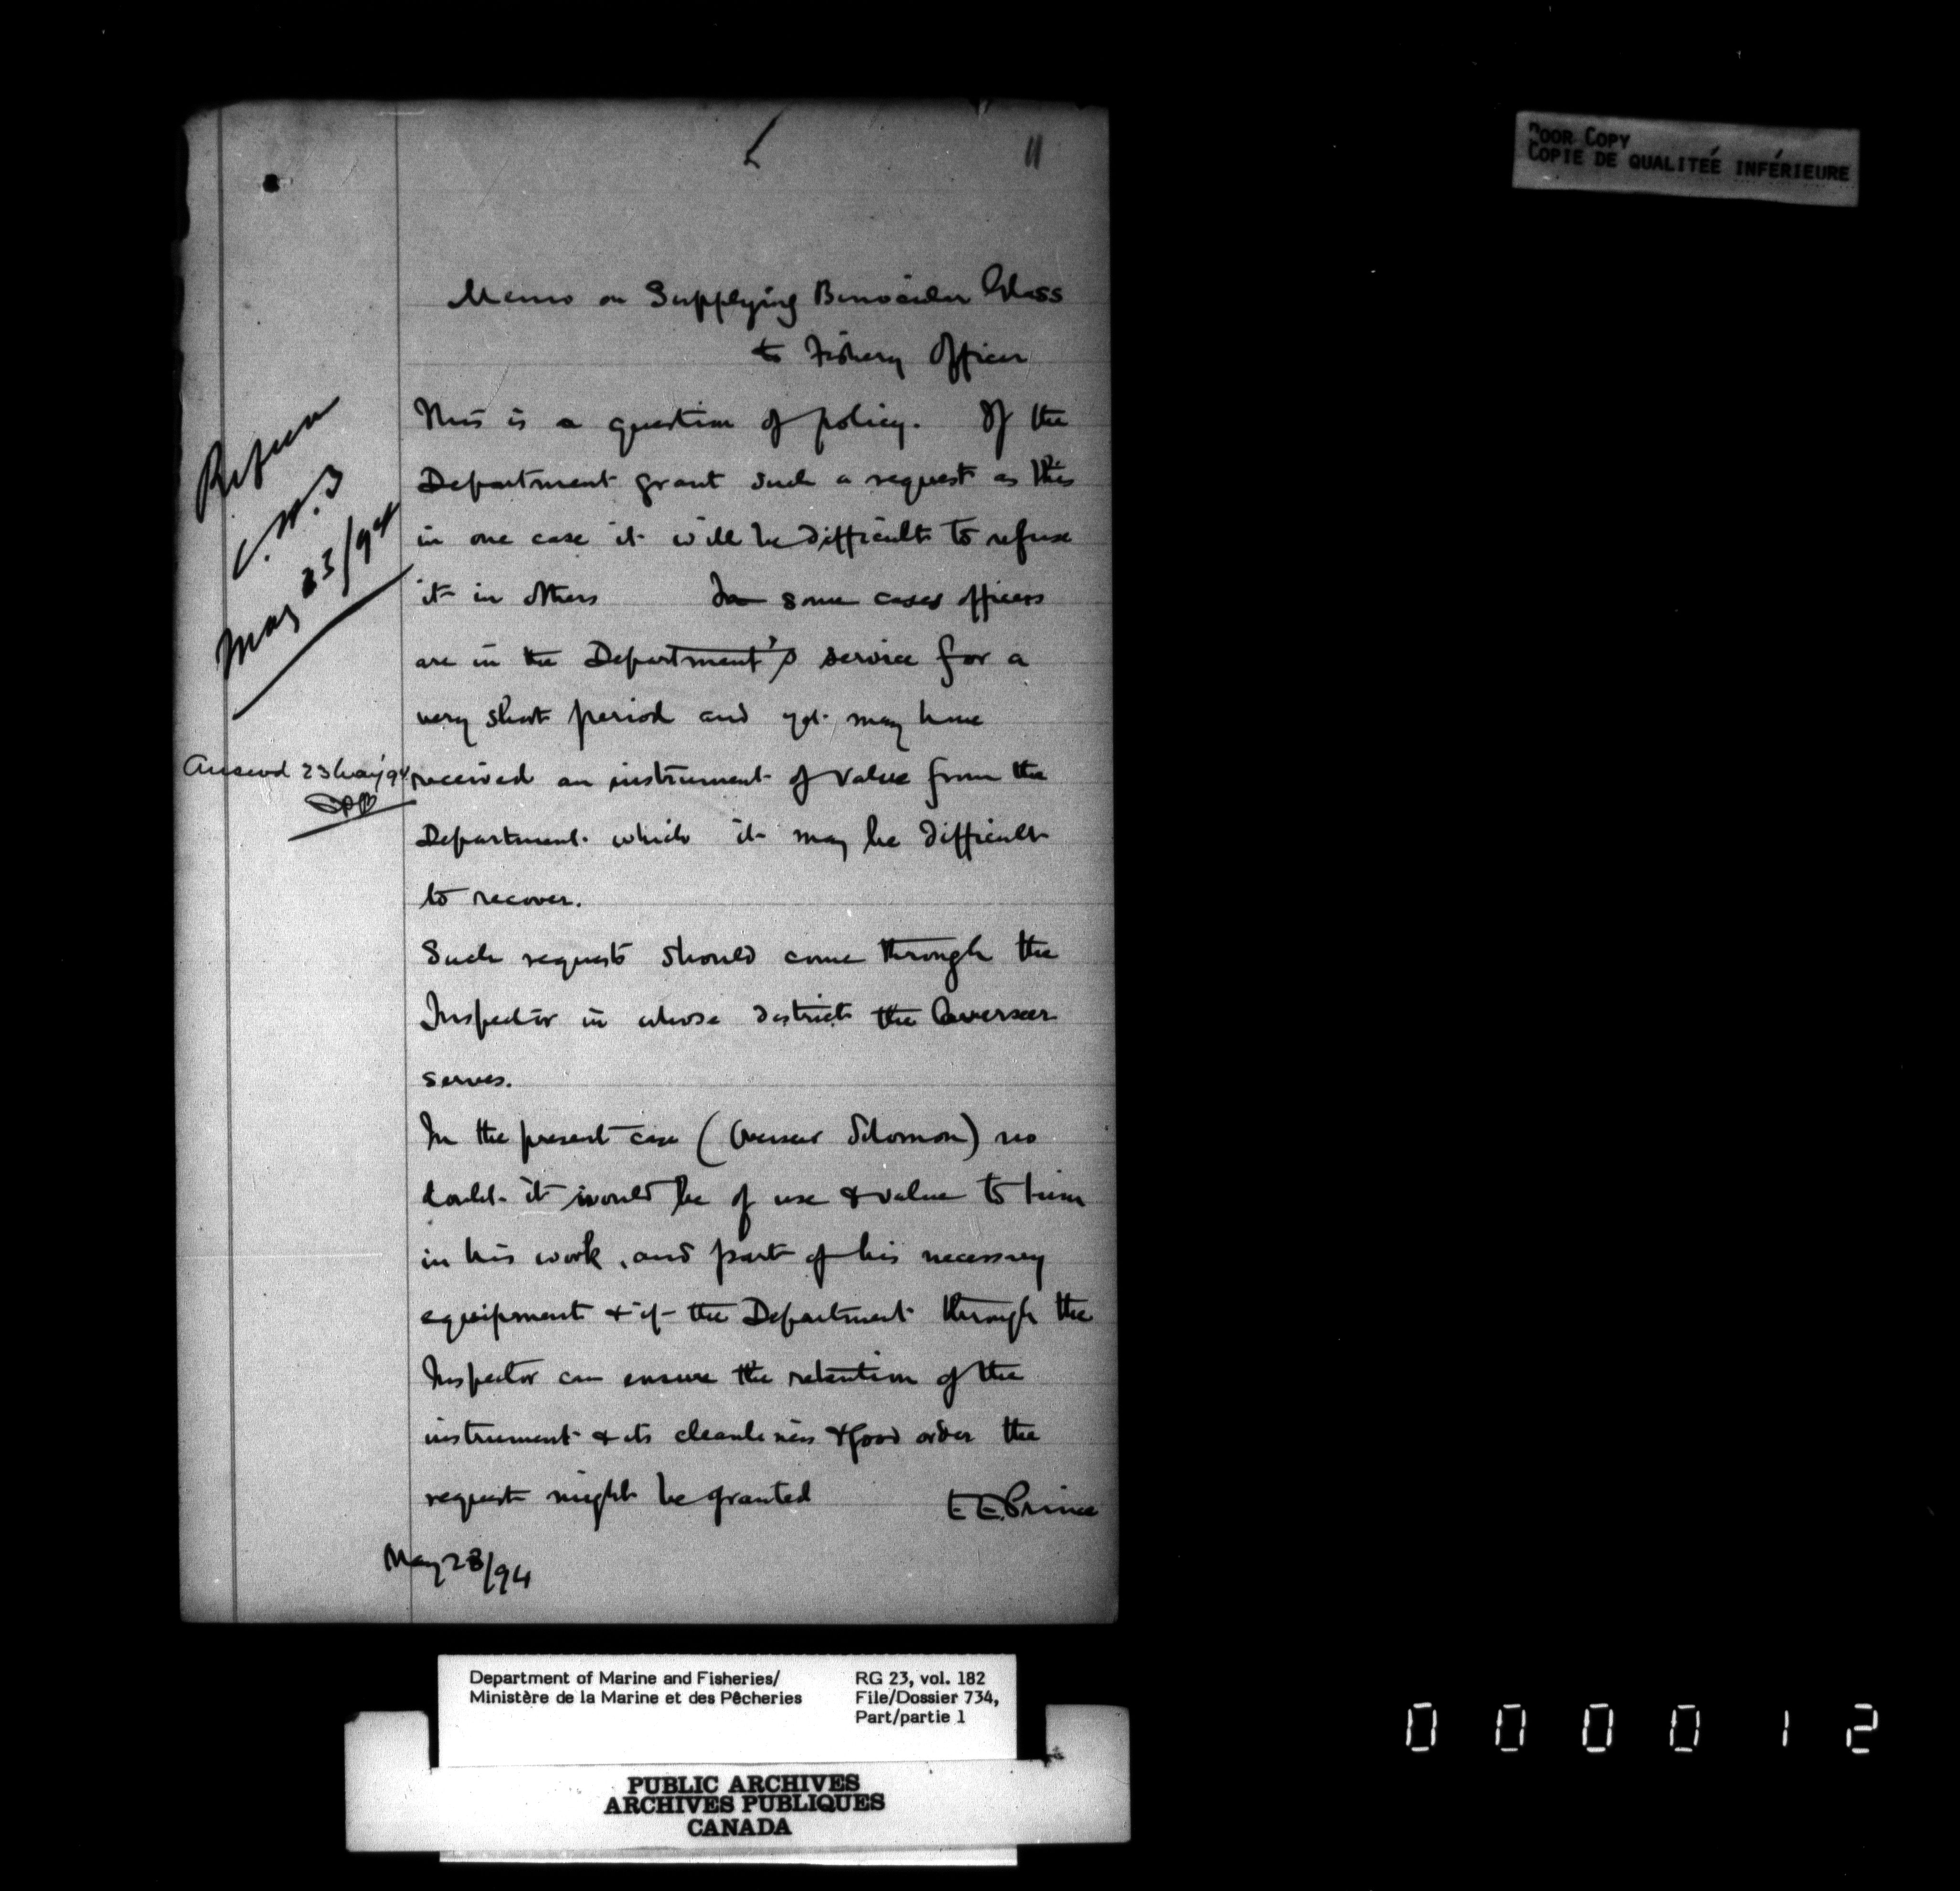 11
POOR COPY
COPIE DE QUALITEÉ INFÉRIEURE
Memo on Supplying Binocular Glass
to Fishery Officer
This is a question of policy. If the
Department grant such a request as this
in one case it will be difficult to refuse
it in others In some cases officers
are in the Department's service for a
very short period and yet may have
received an instrument of value from the
Department which it may be difficult
to recover.
Such requests should come through the
Inspector in whose district the Overseer
serves.
In the present case (Overseer Solomon) no
doubt it would be of use & value to him
in his work, and part of his necessary
equipment & if the Department through the
Inspector can ensure the retention of the
instrument & its cleanliness & good order the
request might be granted
E E Prince
May 23/94
Refuse
May 23/94
Answd 23 May 94
Department of Marine and Fisheries/
Ministère de la Marine et des Pêcheries
RG 23, vol. 182
File/Dossier 734,
Part/partie 1
PUBLIC ARCHIVES
ARCHIVES PUBLIQUES
CANADA
000012